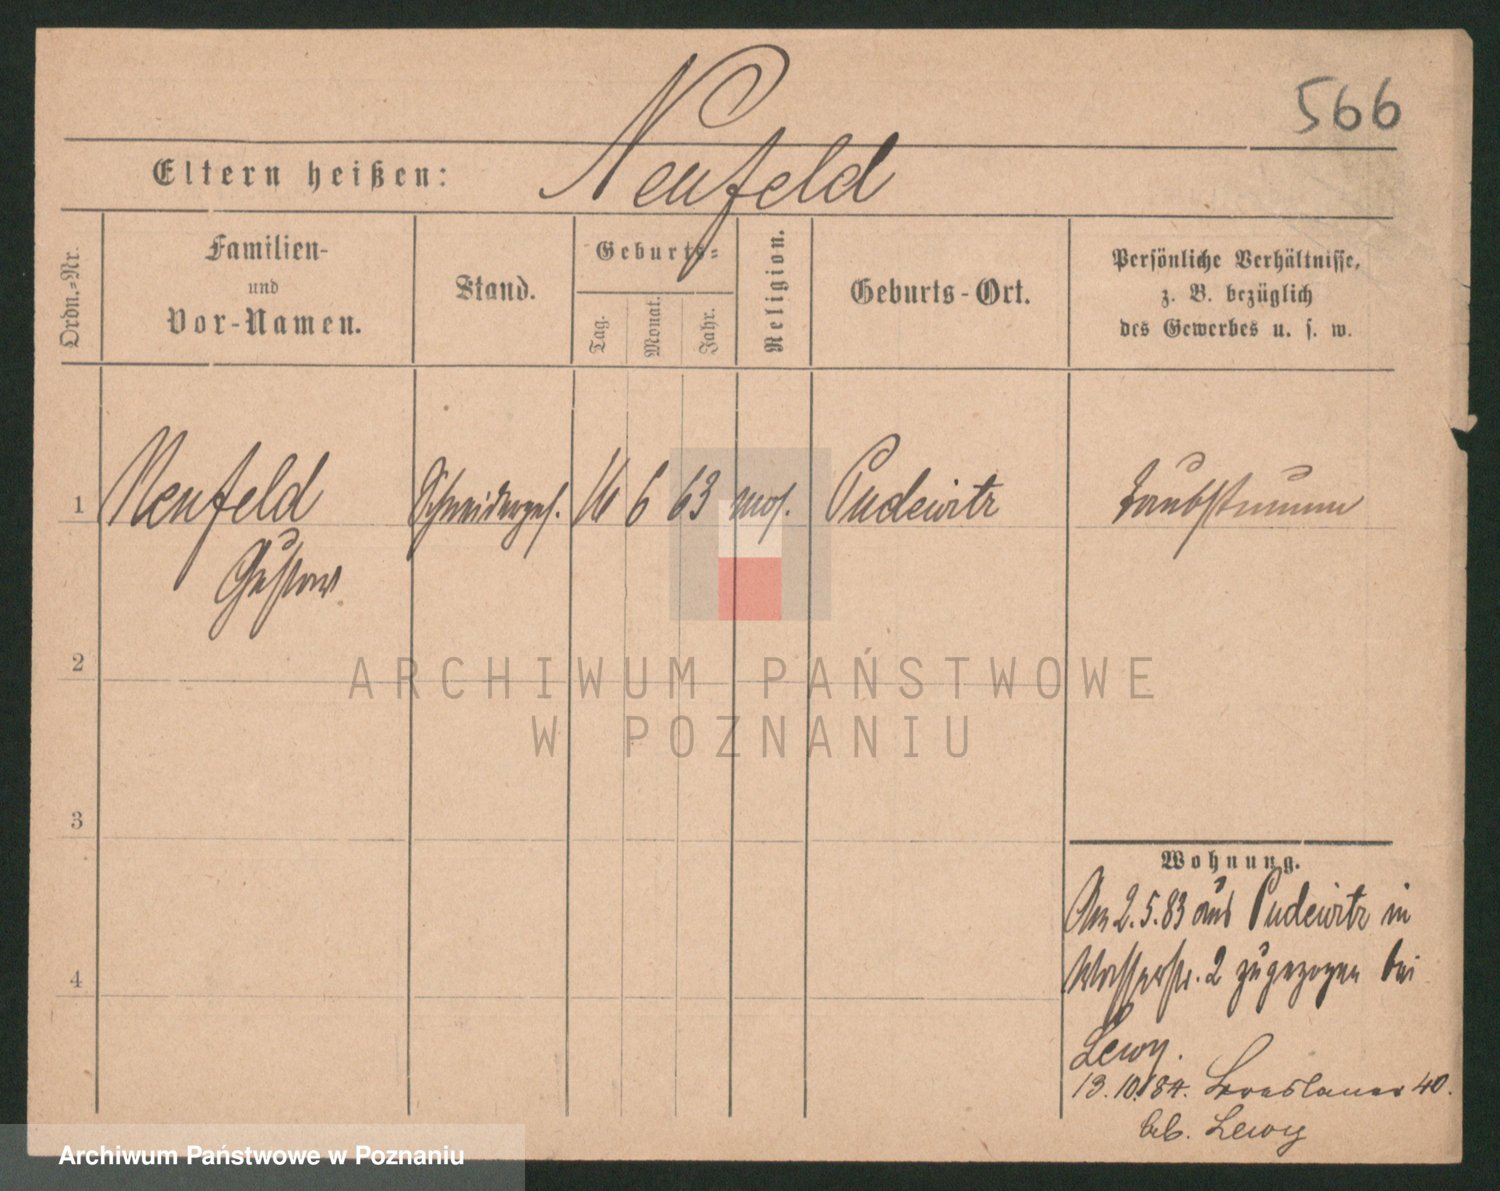 566
Eltern heißen: Neufeld
Ordn.-Nr.
Familien-
und
Vor-Namen.
Stand.
Geburts-
Tag.
Monat.
Jahr.
Religion.
Geburts-Ort.
Persönliche Verhältnisse,
z. B. bezüglich
des Gewerbes u. s. w.
1 Neufeld Schneiderges. 16 6 63 mos. Pudewitz taubstumm
Gustav
2
ARCHIWUM PAŃSTWOWE
W POZNANIU
3
Wohnung.
Am 2.5.83 aus Pudewitz in
Wasserstr. 2 zugezogen bei
4
Lewy.
13.10.84. Breslauer 40.
bei. Lewy
Archiwum Państwowe w Poznaniu